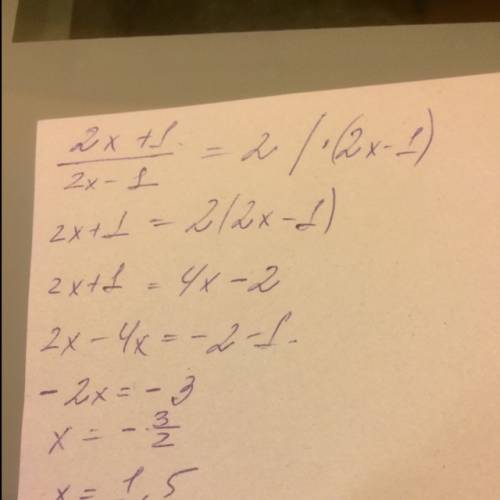 2x+1/2x-1 = 2 /·(2x-1)
2x+1 = 2(2x-1)
2x+1 = 4x-2
2x-4x=-2-1.
-2x=-3
x = -3/2
x = 1,5